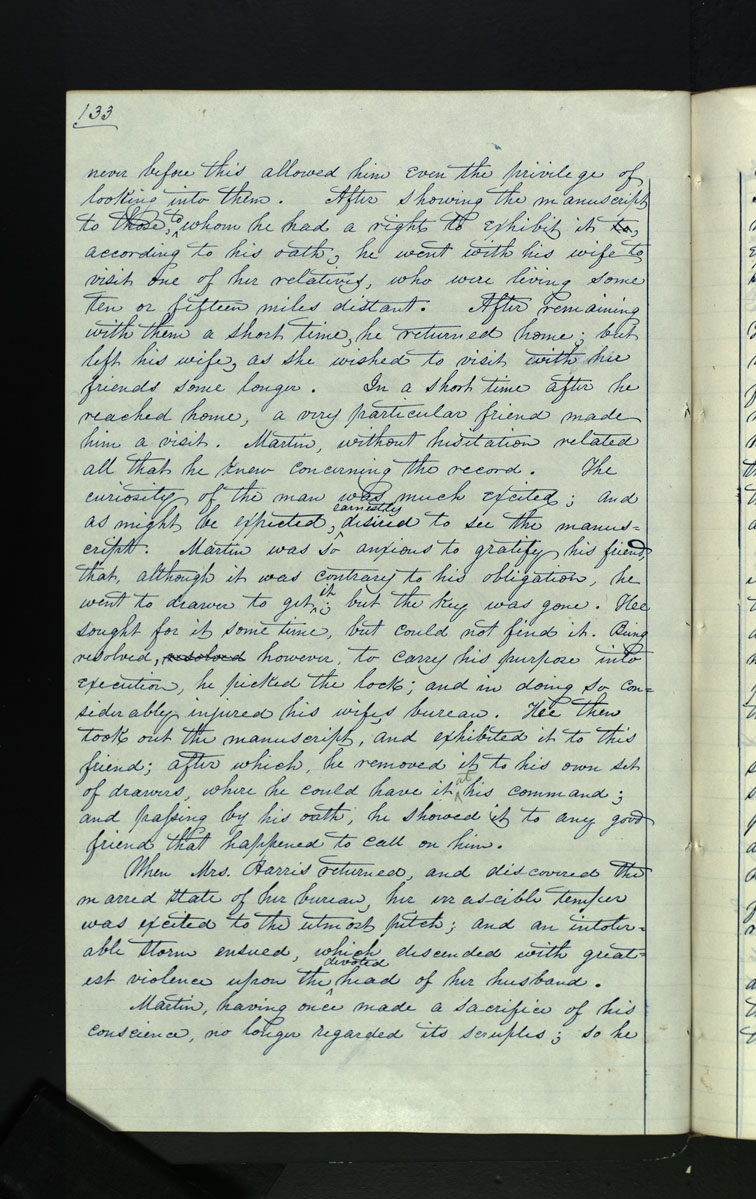 133
never before this allowed him even the privilege of
looking into them. After showing the manuscript
to those, to whom he had a right to exhibit it to,
according to his oath; he went with his wife to
visit one of her relatives, who were living some
ten or fifteen miles distant. After remaining
with them a short time, he returned home; but
left his wife, as she wished to visit with her
friends some longer. In a short time after he
reached home, a very particular friend made
him a visit. Martin, without hesitation related
all that he knew concerning the record. The
curiosity of the man was much excited; and
as might be expected, earnestly desired to see the manus=
cript. Martin was so anxious to gratify his friend,
that, although it was contrary to his obligation, he
went to drawer to get it; but the key was gone. Hee
sought for it some time, but could not find it. Being
resolved, resolved however, to carry his purpose into
execution, he picked the lock; and in doing so con=
siderably injured his wife's bureau. Hee then
took out the manuscript, and exhibited it to this
friend; after which, he removed it to his own set
of drawers, where he could have it at his command;
and passing by his oath, he showed it to any good
friend that happened to call on him.
When Mrs. Harris returned, and discovered the
marred state of her bureau, her irrascible temper
was excited to the utmost pitch; and an intoler=
able storm ensued, which descended with great=
est violence upon the devoted head of her husband.
Martin, having once made a sacrifice of his
conscience, no longer regarded its scruples; so he